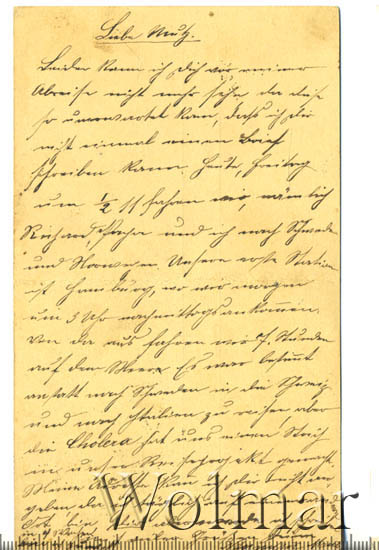 Liebe Mutz.
Leider kann ich dich vor meiner
Abreise nicht mehr sehen da diese
so unerwartet kam, dass ich dir
nicht einmal einen Brief
schreiben kann. Heute, Freitag
um ½ 11 fahren wir, nämlich
Richard, und ich nach Schweden
und Norwegen. Unsere erste Station
ist Hamburg, wo wir morgen
um 5 Uhr nachmittags ankommen.
Von da aus fahren wir 7 Stunden
auf dem Meere. Es war bestimmt
anstatt nach Schweden in die Schweiz
und nach Italien zu reisen aber
die Cholera hat uns einen Strich
in unser Reiseprojekt gemacht.
Meine kann ich dir nicht an-
geben da ich
Wolmar